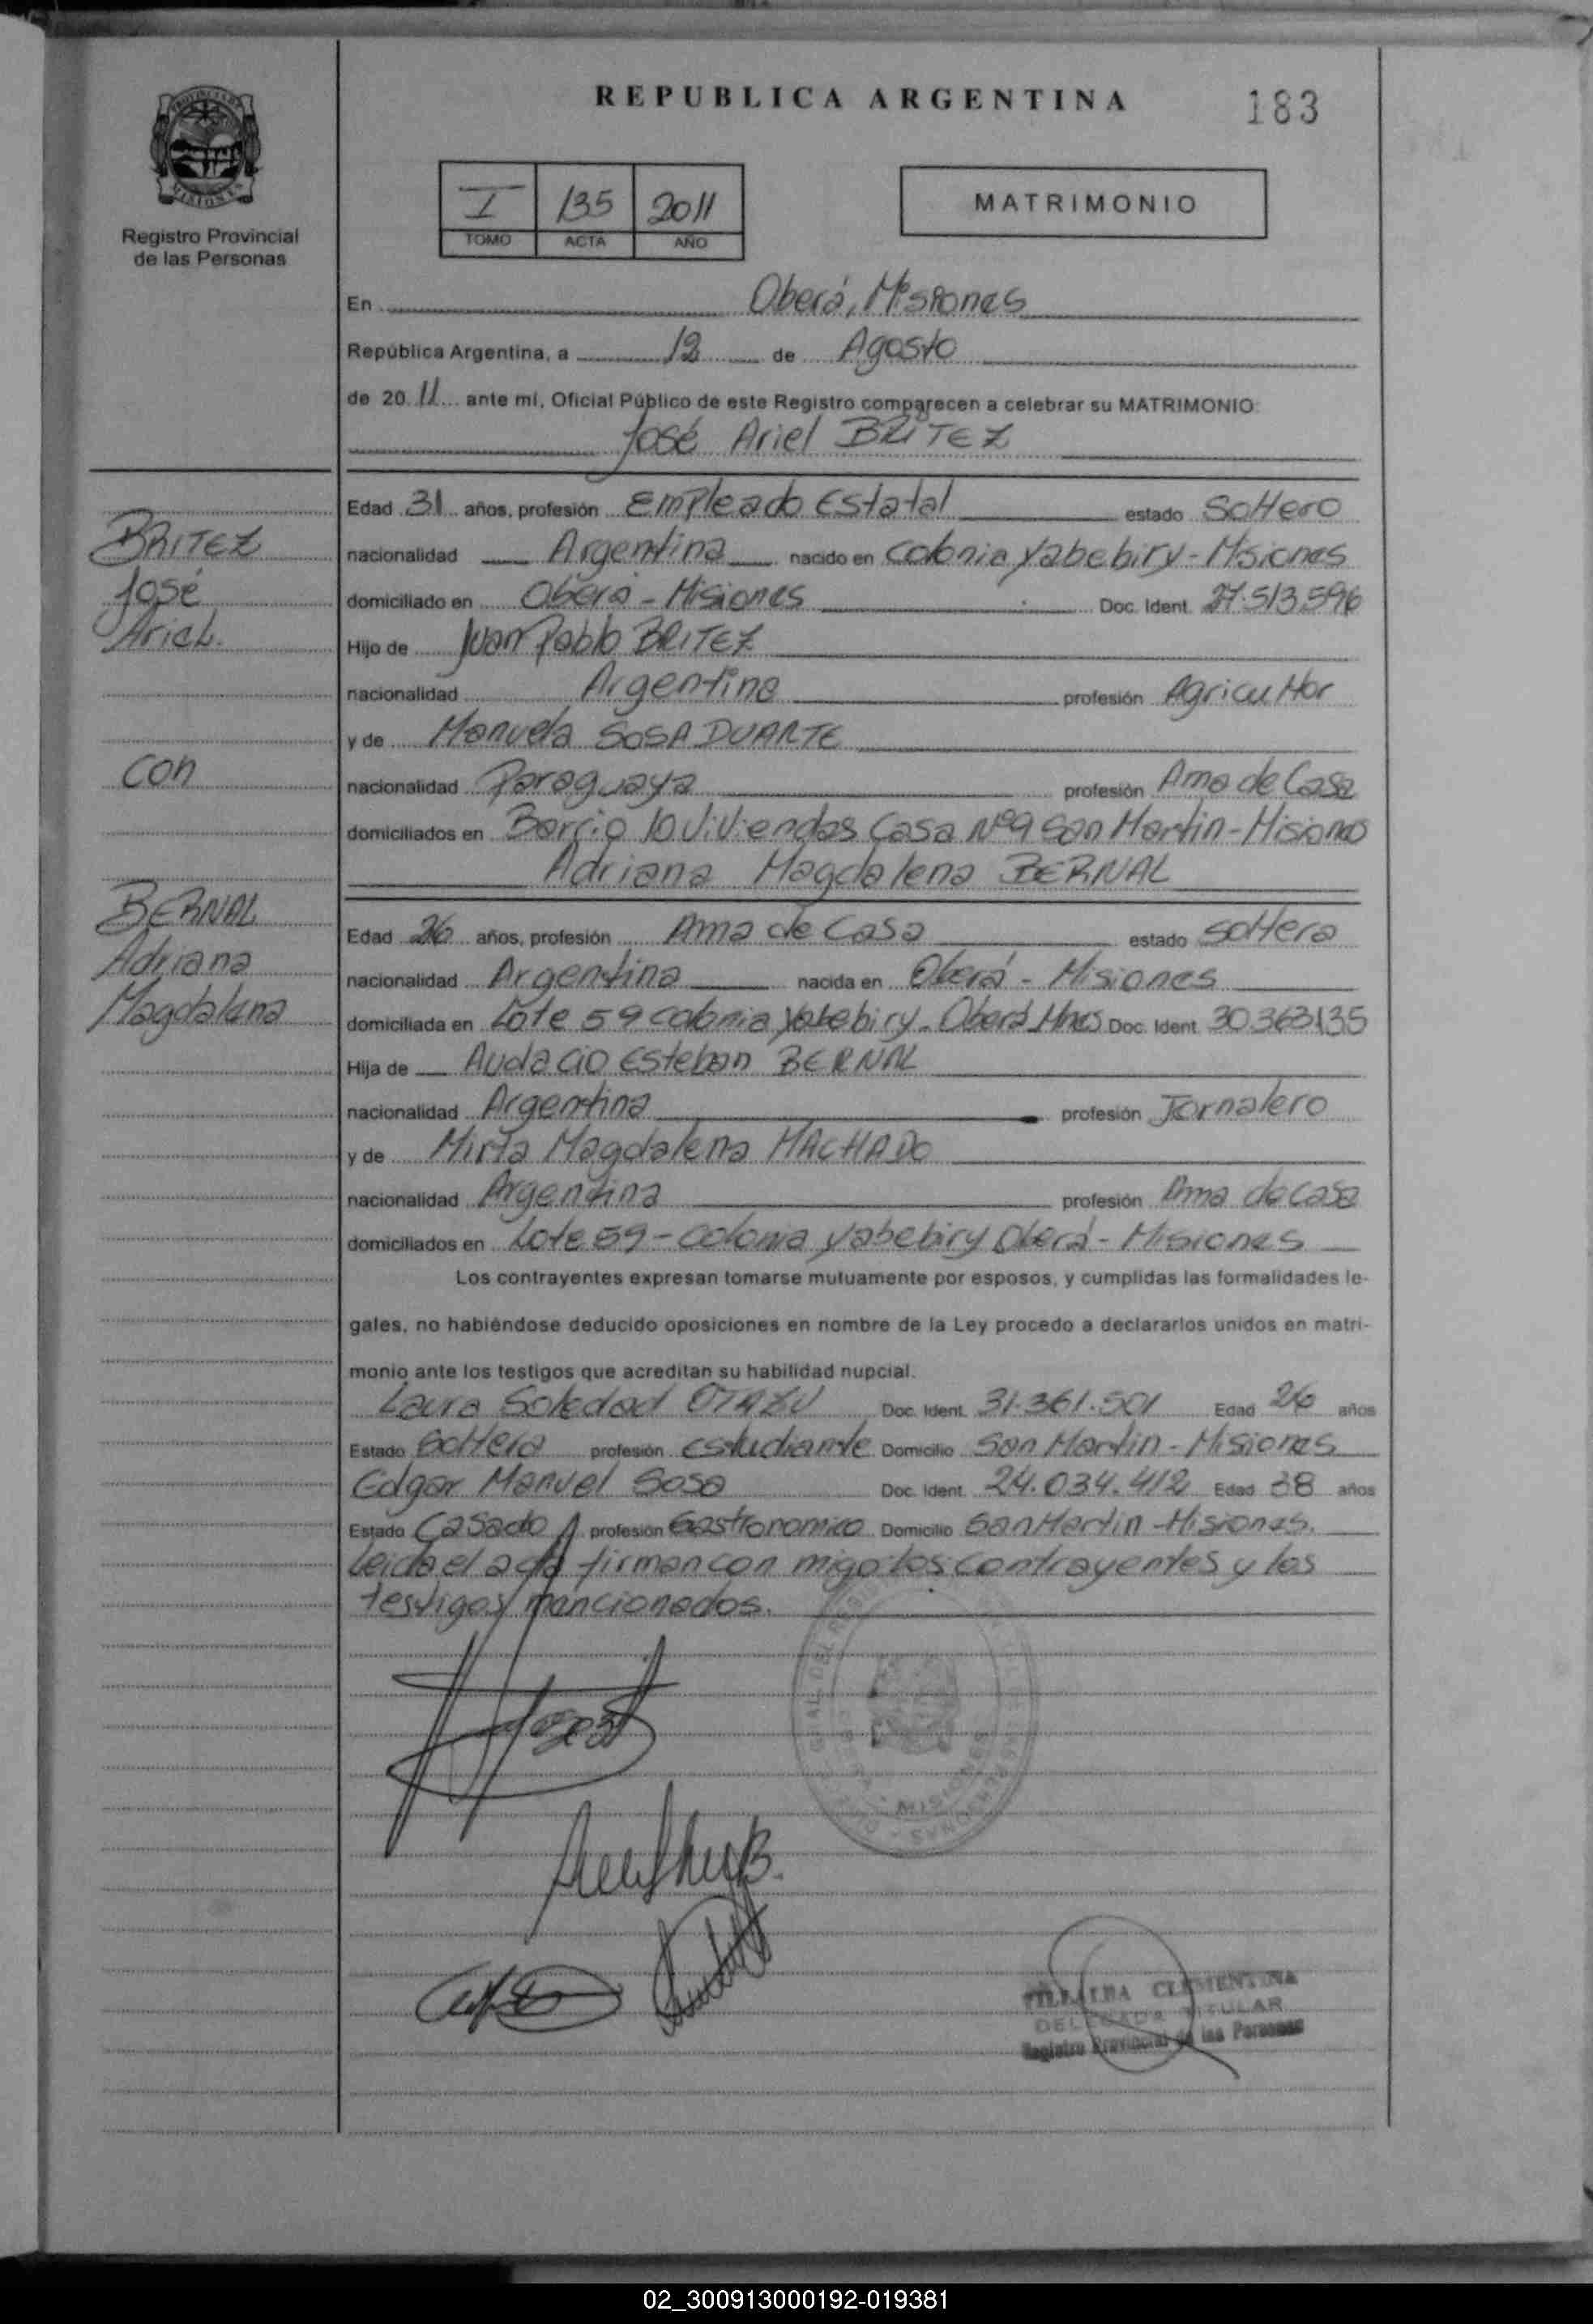 REPUBLICA ARGENTINA
183
I 135 2011
TOMO ACTA AÑO
MATRIMONIO
Registro Provincial
de las Personas
En Oberá, Misiones
República Argentina, a 12 de Agosto
de 20 11 ante mí, Oficial Público de este Registro comparecen a celebrar su MATRIMONIO:
José Ariel BRITEZ
BRITEZ
José
Ariel.
con
BERNAL
Adriana
Magdalena
Edad 31 años, profesión Empleado Estatal estado Soltero
nacionalidad Argentina nacido en Colonia Yabebiry - Misiones
domiciliado en Oberá - Misiones Doc. Ident. 27.513.596
Hijo de Juan Pablo BRITEZ
nacionalidad Argentina profesión Agricultor
y de Manuela SOSA DUARTE
nacionalidad Paraguaya profesión Ama de Casa
domiciliados en Barrio 10 Viviendas Casa Nº9 San Martin - Misiones
Adriana Magdalena BERNAL
Edad 26 años, profesión Ama de Casa estado Soltera
nacionalidad Argentina nacida en Oberá - Misiones
domiciliada en Lote 59 colonia Yabebiry - Oberá Mnes Doc. Ident. 30.363.135
Hija de Audacio Esteban BERNAL
nacionalidad Argentina profesión Jornalero
y de Mirta Magdalena MACHADO
nacionalidad Argentina profesión Ama de casa
domiciliados en Lote 59 - colonia Yabebiry Oberá - Misiones
Los contrayentes expresan tomarse mutuamente por esposos, y cumplidas las formalidades le-
gales, no habiéndose deducido oposiciones en nombre de la Ley procedo a declararlos unidos en matri-
monio ante los testigos que acreditan su habilidad nupcial.
Laura Soledad OTAZU Doc. Ident. 31.361.501 Edad 26 años
Estado Soltera profesión estudiante Domicilio San Martin - Misiones
Edgar Manuel Sosa Doc. Ident. 24.034.412 Edad 38 años
Estado Casado profesión Gastronomico Domicilio San Martin - Misiones.
Leida el acta firman con migo los contrayentes y los
testigos mencionados.
MISIONES
CLEMENTINA
DELEGADA TITULAR
Registro Provincial de las Personas
02_300913000192-019381